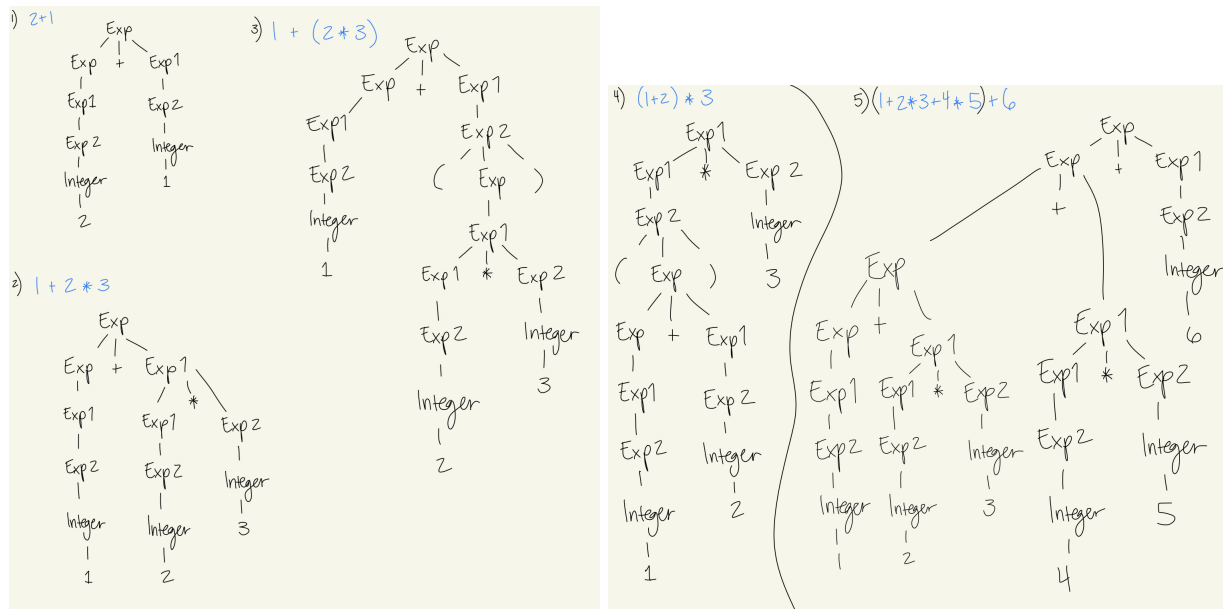 1) 2+1
Exp
Exp + Exp1
Exp1 Exp2
Exp2 Integer
Integer 1
2
2) 1 + 2 * 3
Exp
Exp + Exp1
*
Exp1 Exp1 Exp2
Exp2 Exp2 Integer
Integer Integer 3
1 2
3) 1 + (2 * 3)
Exp
Exp + Exp1
Exp1 Exp2
Exp2 ( Exp )
Integer Exp1
1 Exp1 * Exp2
Exp2 Integer
Integer 3
2
4) (1+2) * 3
Exp1
Exp1 * Exp2
Exp2 Integer
( Exp ) 3
Exp + Exp1
Exp1 Exp2
Exp2 Integer
Integer 2
1
5) (1+2*3+4*5)+6
Exp
Exp + Exp1
+ Exp2
Exp Integer
Exp + Exp1 6
Exp1 Exp1 * Exp2 Exp1 * Exp2
Exp2 Exp2 Integer Exp2 Integer
Integer Integer 3 Integer 5
1 2 4